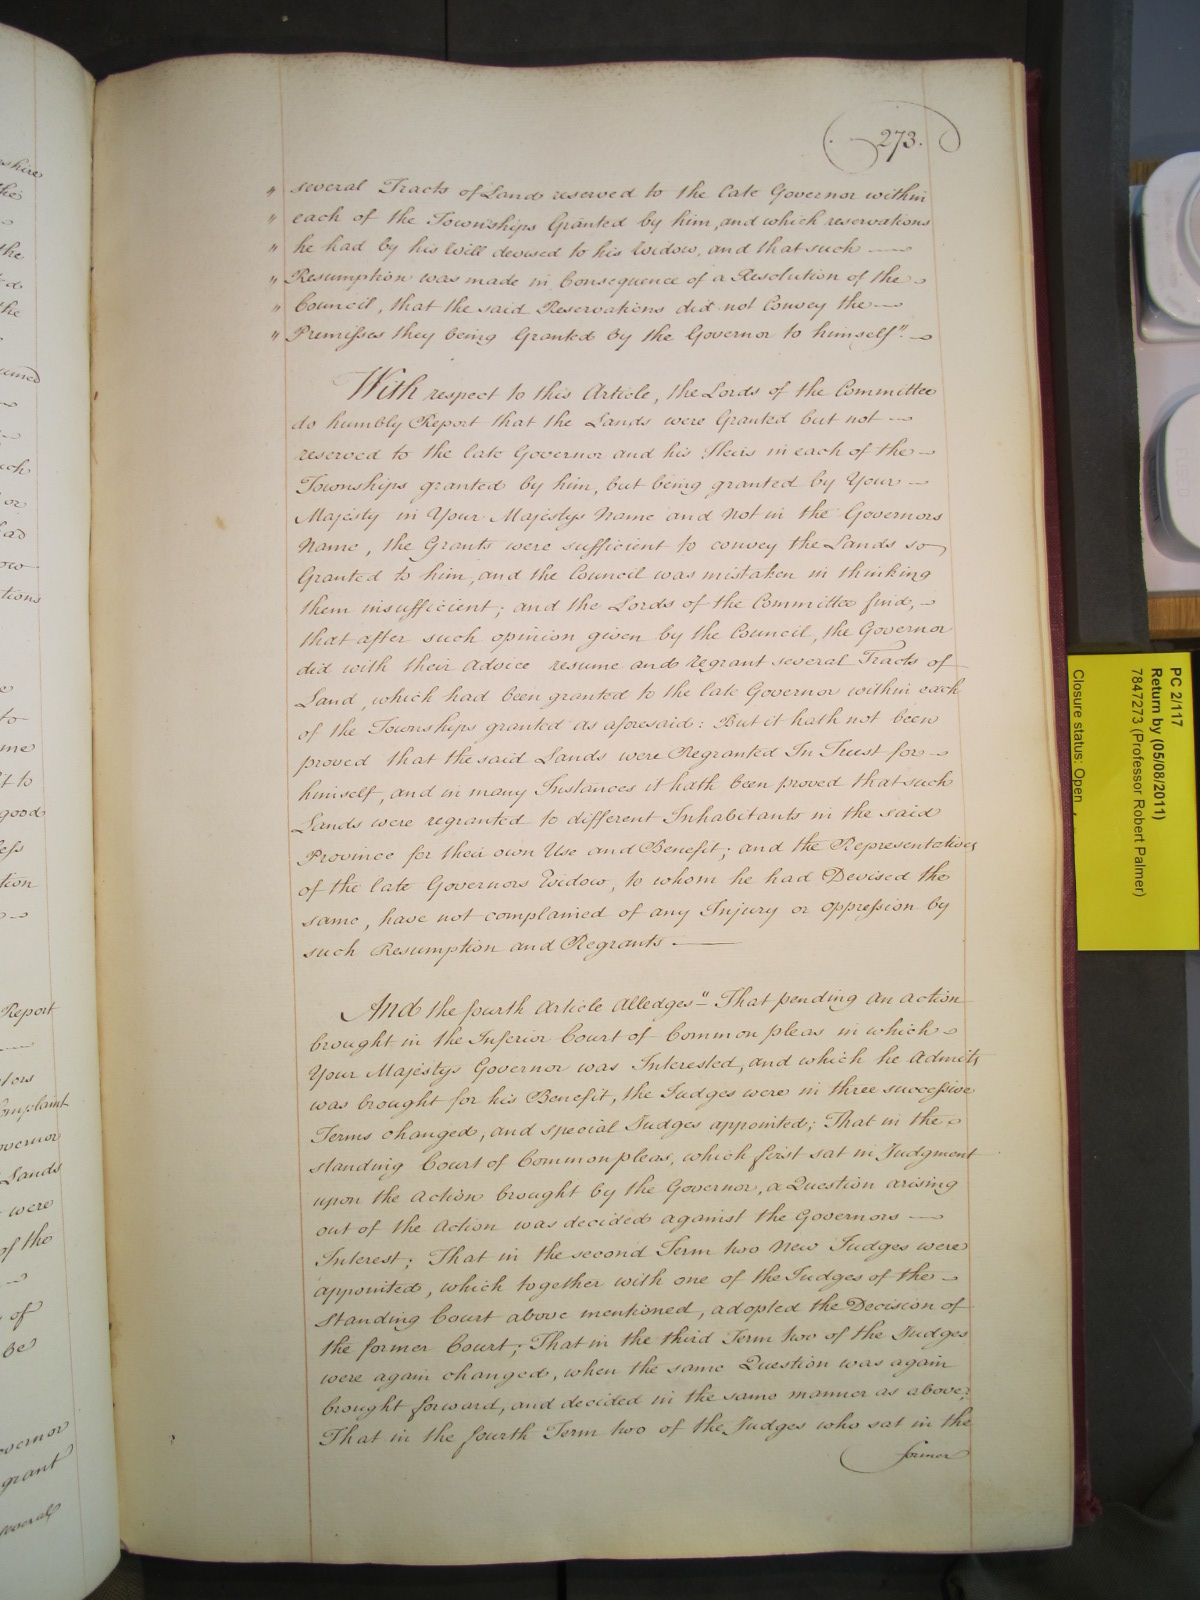 273.
" several Tracts of Land reserved to the late Governor within
" each of the Townships Granted by him, and which reservations
" he had by his Will devised to his Widow, and that such —
" Resumption was made in Consequence of a Resolution of the
" Council, that the said Reservations did not Convey the —
" Premisses they being Granted by the Governor to himself". —
With respect to this Article, the Lords of the Committee
do humbly Report that the Lands were Granted but not —
reserved to the late Governor and his Heirs in each of the —
Townships granted by him, but being granted by Your —
Majesty in Your Majestys Name and Not in the Governors
Name, the Grants were sufficient to convey the Lands so
Granted to him, and the Council was mistaken in thinking
them insufficient; and the Lords of the Committee find, —
that after such opinion given by the Council, the Governor
did with their Advice resume and regrant several Tracts of
Land, which had been granted to the late Governor within each
of the Townships granted as aforesaid: But it hath not been
proved that the said Lands were Regranted In Trust for —
himself, and in many Instances it hath been proved that such
Lands were regranted to different Inhabitants in the said
Province for their own Use and Benefit; and the Representatives
of the late Governors Widow, to whom he had Devised the
same, have not complained of any Injury or oppression by
such Resumption and Regrants —
And the fourth Article Alledges "That pending an Action
brought in the Inferior Court of Common pleas in which —
Your Majestys Governor was Interested, and which he Admits
was brought for his Benefit, the Judges were in three successive
Terms changed, and special Judges appointed; That in the —
standing Court of Common pleas, which first sat in Judgment
upon the Action brought by the Governor, a Question arising
out of the Action was decided against the Governors —
Interest; That in the second Term two New Judges were
appointed, which together with one of the Judges of the —
Standing Court above mentioned, adopted the Decision of
the former Court; That in the third Term two of the Judges
were again changed, when the same Question was again
brought forward, and decided in the same manner as above;
That in the fourth Term two of the Judges who sat in the
former
PC 2/117
Return by (05/08/2011)
7847273 (Professor Robert Palmer)
Closure status: Open
the
the
to
me
t to
good
tion
Report
Complaint
Lands
were
of the
of
be
grant